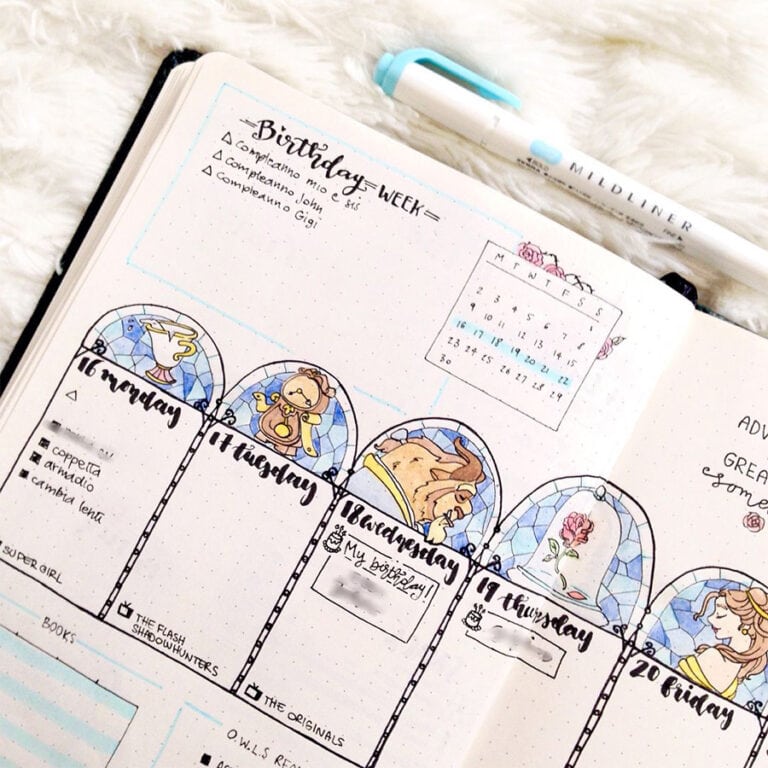 Birthday WEEK
compleanno mio e sis
compleanno John
compleanno Gigi
MILDLINER
M T W T F S S
1
2 3 4 5 6 7 8
9 10 11 12 13 14 15
16 17 18 19 20 21 22
23 24 25 26 27 28 29
30
16 monday
coppetta
armadio
cambia lenti
SUPERGIRL
17 tuesday
THE FLASH
SHADOWHUNTERS
18 wednesday
My birthday!
THE ORIGINALS
19 thursday
20 friday
BOOKS
O.W.L.S
ADV
GREA
some